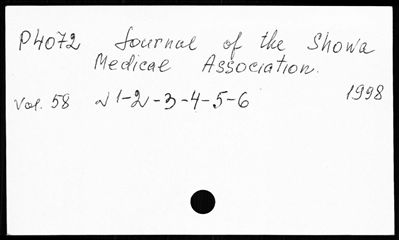 P4072 Journal of the Showa
Medical Association.
Vol. 58 N 1-2-3-4-5-6 1998